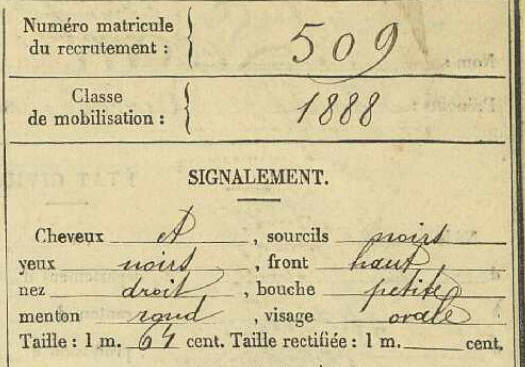 Numéro matricule
du recrutement : 509
Classe
de mobilisation : 1888
SIGNALEMENT.
Cheveux et, sourcils noirs
yeux noirs, front haut,
nez droit, bouche petite
menton rond, visage ovale
Taille : 1 m. 64 cent. Taille rectifiée : 1 m. cent.